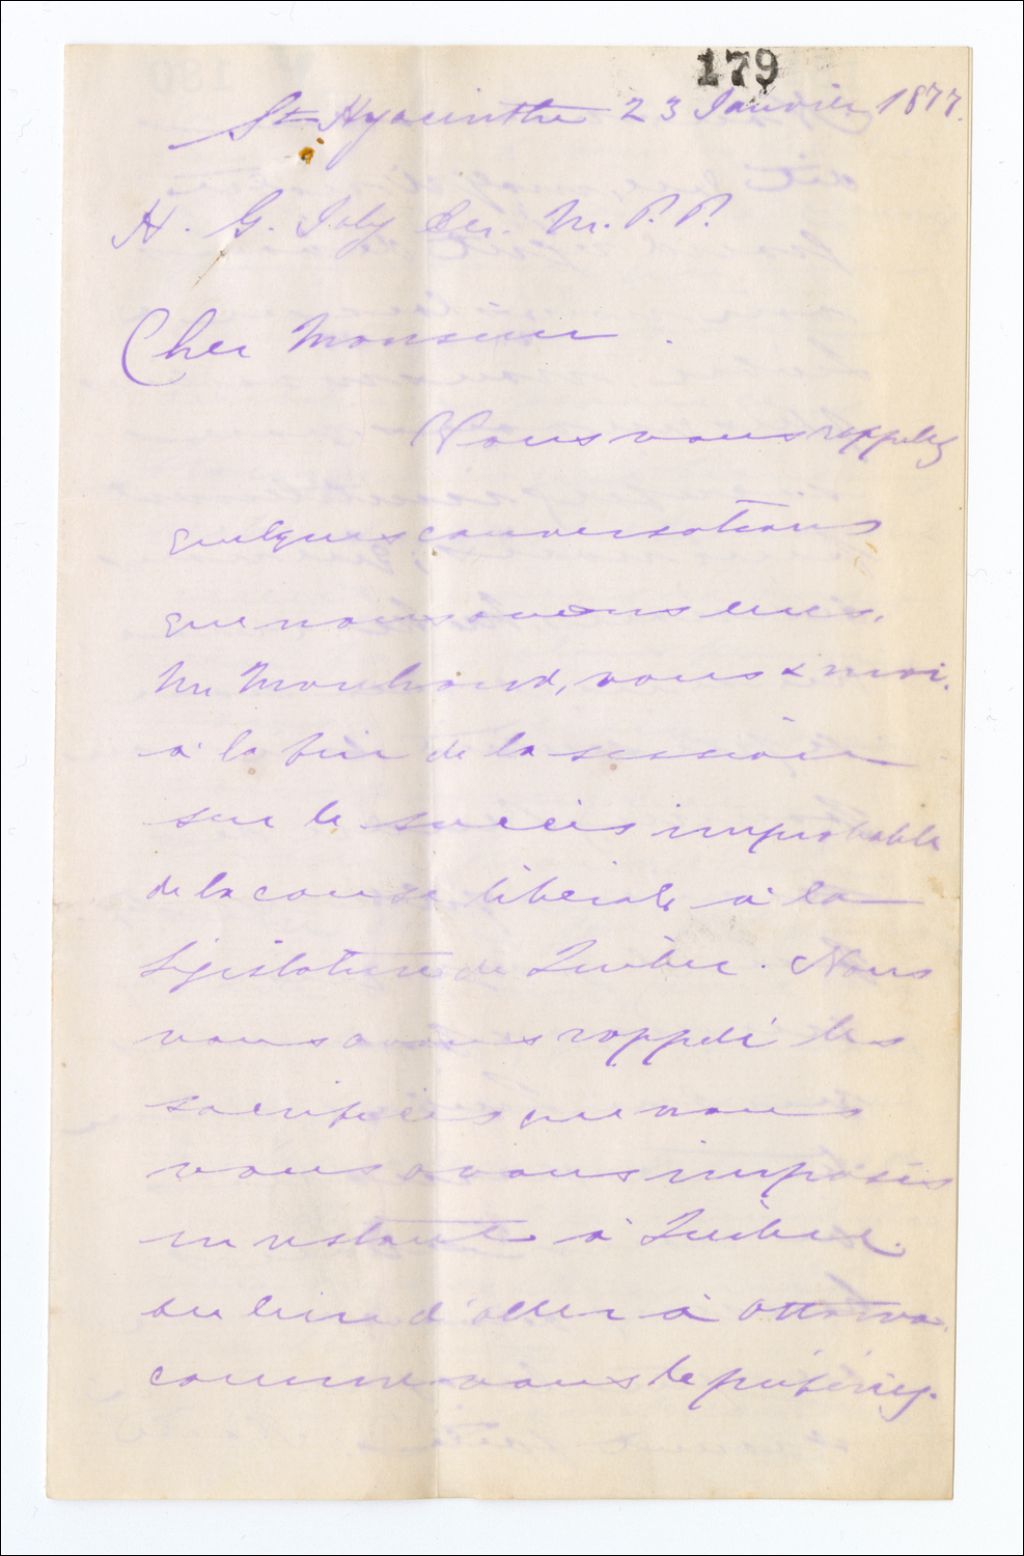 179
St Hyacinthe 23 Janvier 1877.
H. G. Joly Ecr. M. P. P.
Cher Monsieur.
Vous vous rappelez
quelques conversations
que nous avons eues,
Mr Marchand, vous & moi,
à la fin de la session
sur le succès improbable
de la cause libérale à la
Législature de Québec. Nous
vous avons rappelé les
sacrifices que nous
vous avons imposés
en restant à Québec.
au lieu d'aller à Ottawa,
comme vous le préfériez.